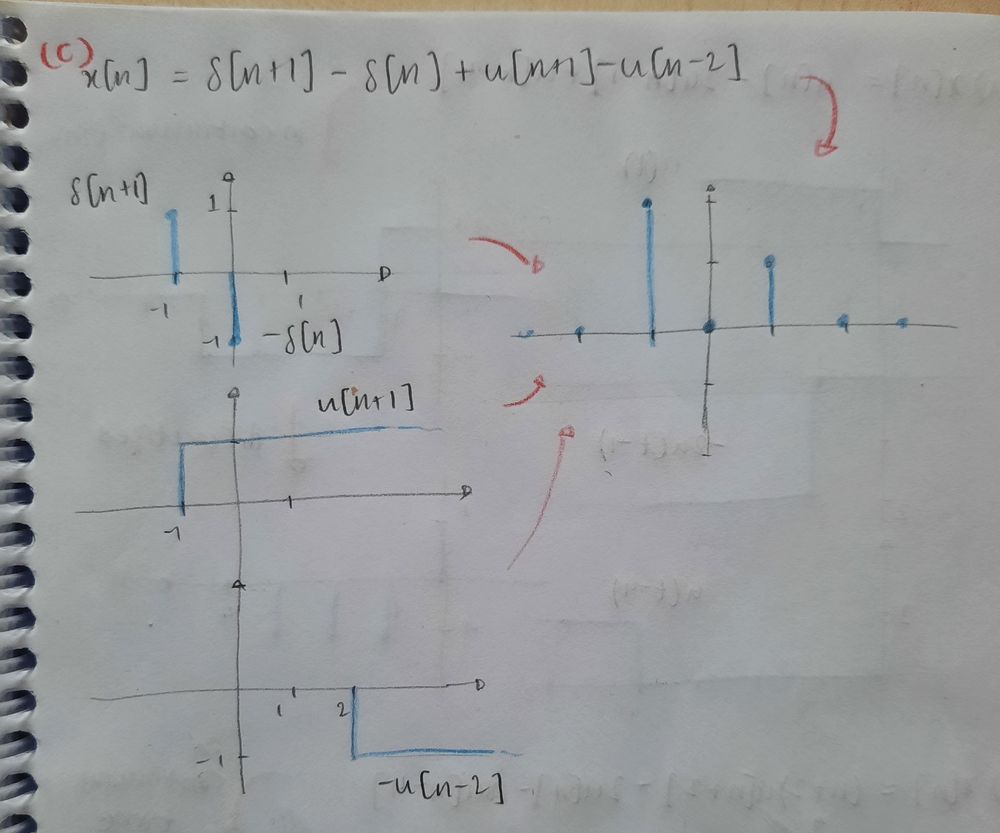 (C) x[n] = δ[n+1] - δ[n] + u[n+1] - u[n-2]
δ[n+1]
1
-1
1
-1
-δ[n]
u[n+1]
-1
1
2
-1
-u[n-2]